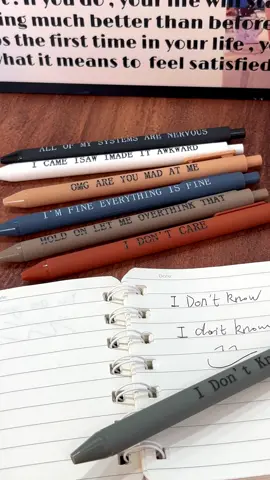 . If you do , your life will
ing much better than before
s the first time in your life , y
what it means to feel satisfied
ALL OF MY SYSTEMS ARE NERVOUS
I CAME ISAW IMADE IT AWKWARD
OMG ARE YOU MAD AT ME
I'M FINE EVERYTHING IS FINE
HOLD ON LET ME OVERTHINK THAT
I DON'T CARE
I Don't know
I don't know
I Don't Kn